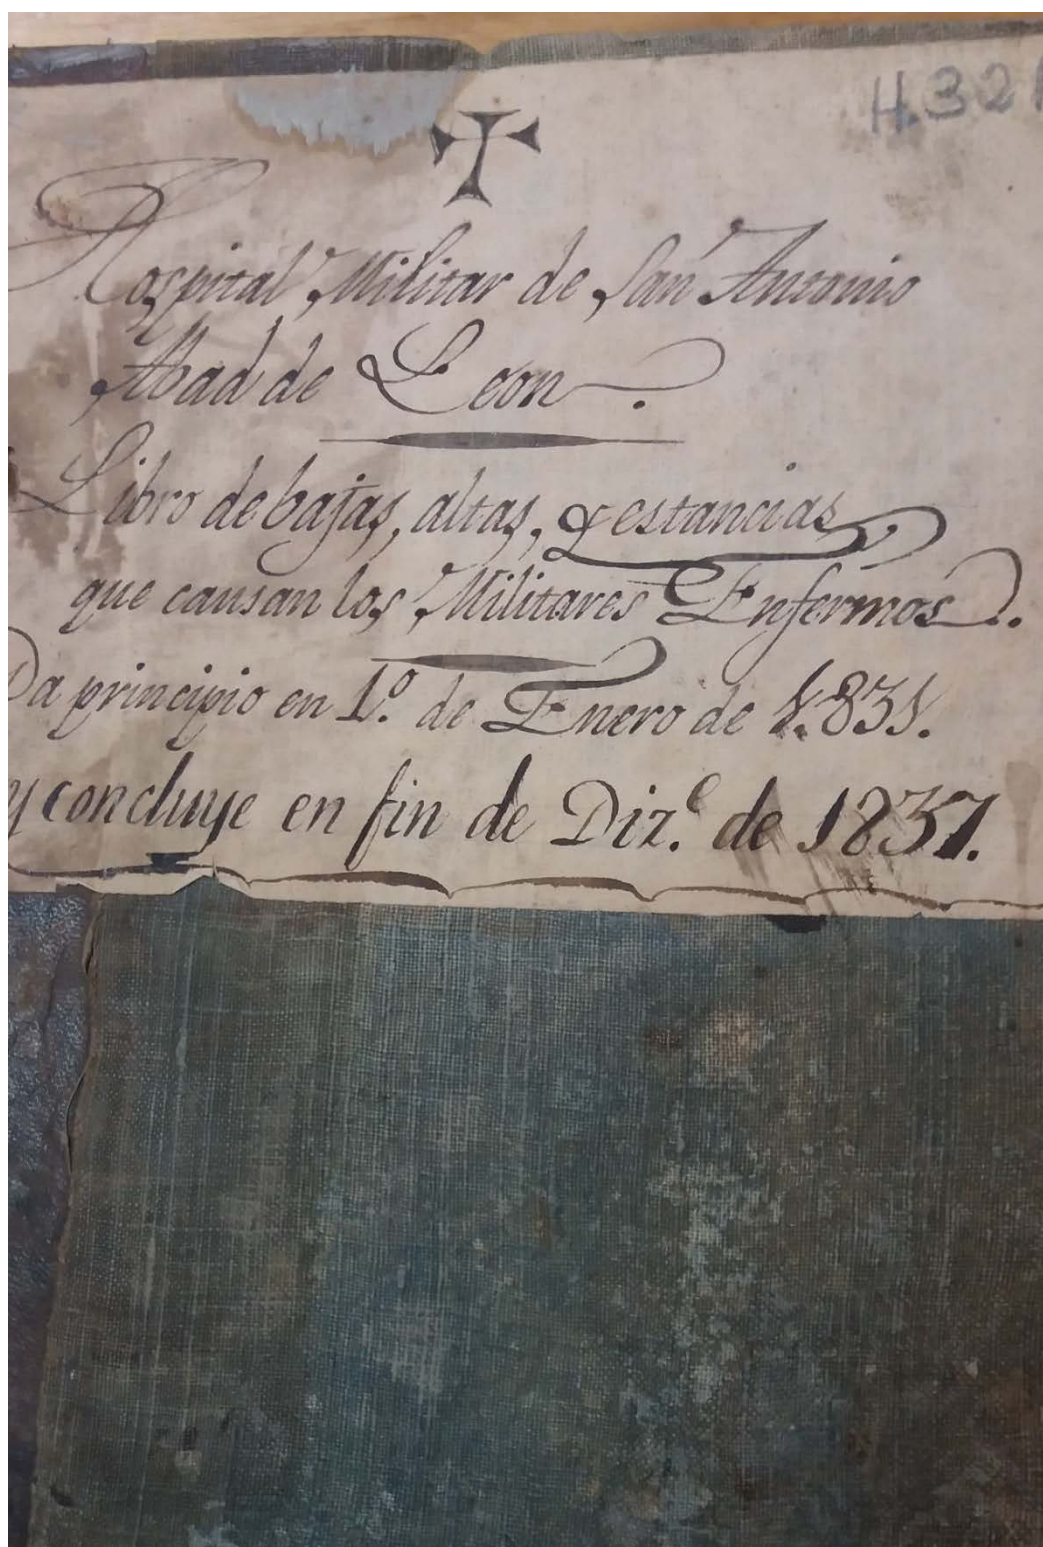 H.32
Hospital Militar de San Antonio
Abad de Leon.
Libro de bajas, altas, y estancias,
que causan los Militares Enfermos.
Da principio en 1º. de Enero de 1.831.
y concluye en fin de Diz.e de 1837.